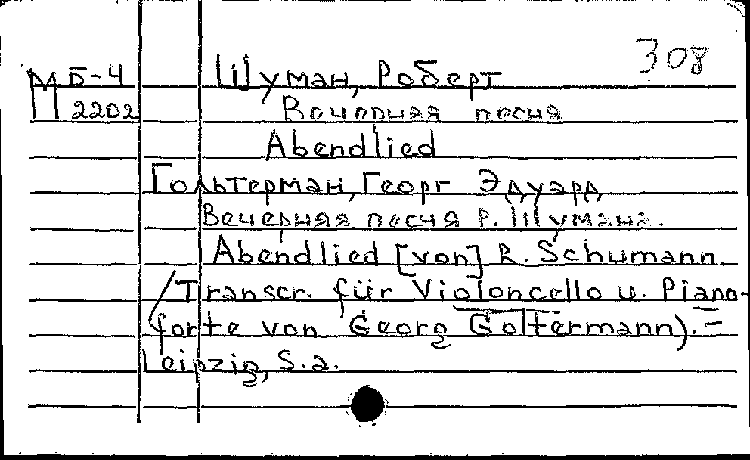 308
М Б-4 Шуман, Роберт
2202 Вечерняя песня
Abendlied
Гольтерман, Георг Эдуард
Вечерняя песня Р. Шумана.
Abendlied [von] R. Schumann.
(Transcr. für Violoncello u. Piano-
forte von Georg Goltermann). =
Leipzig, S.a.